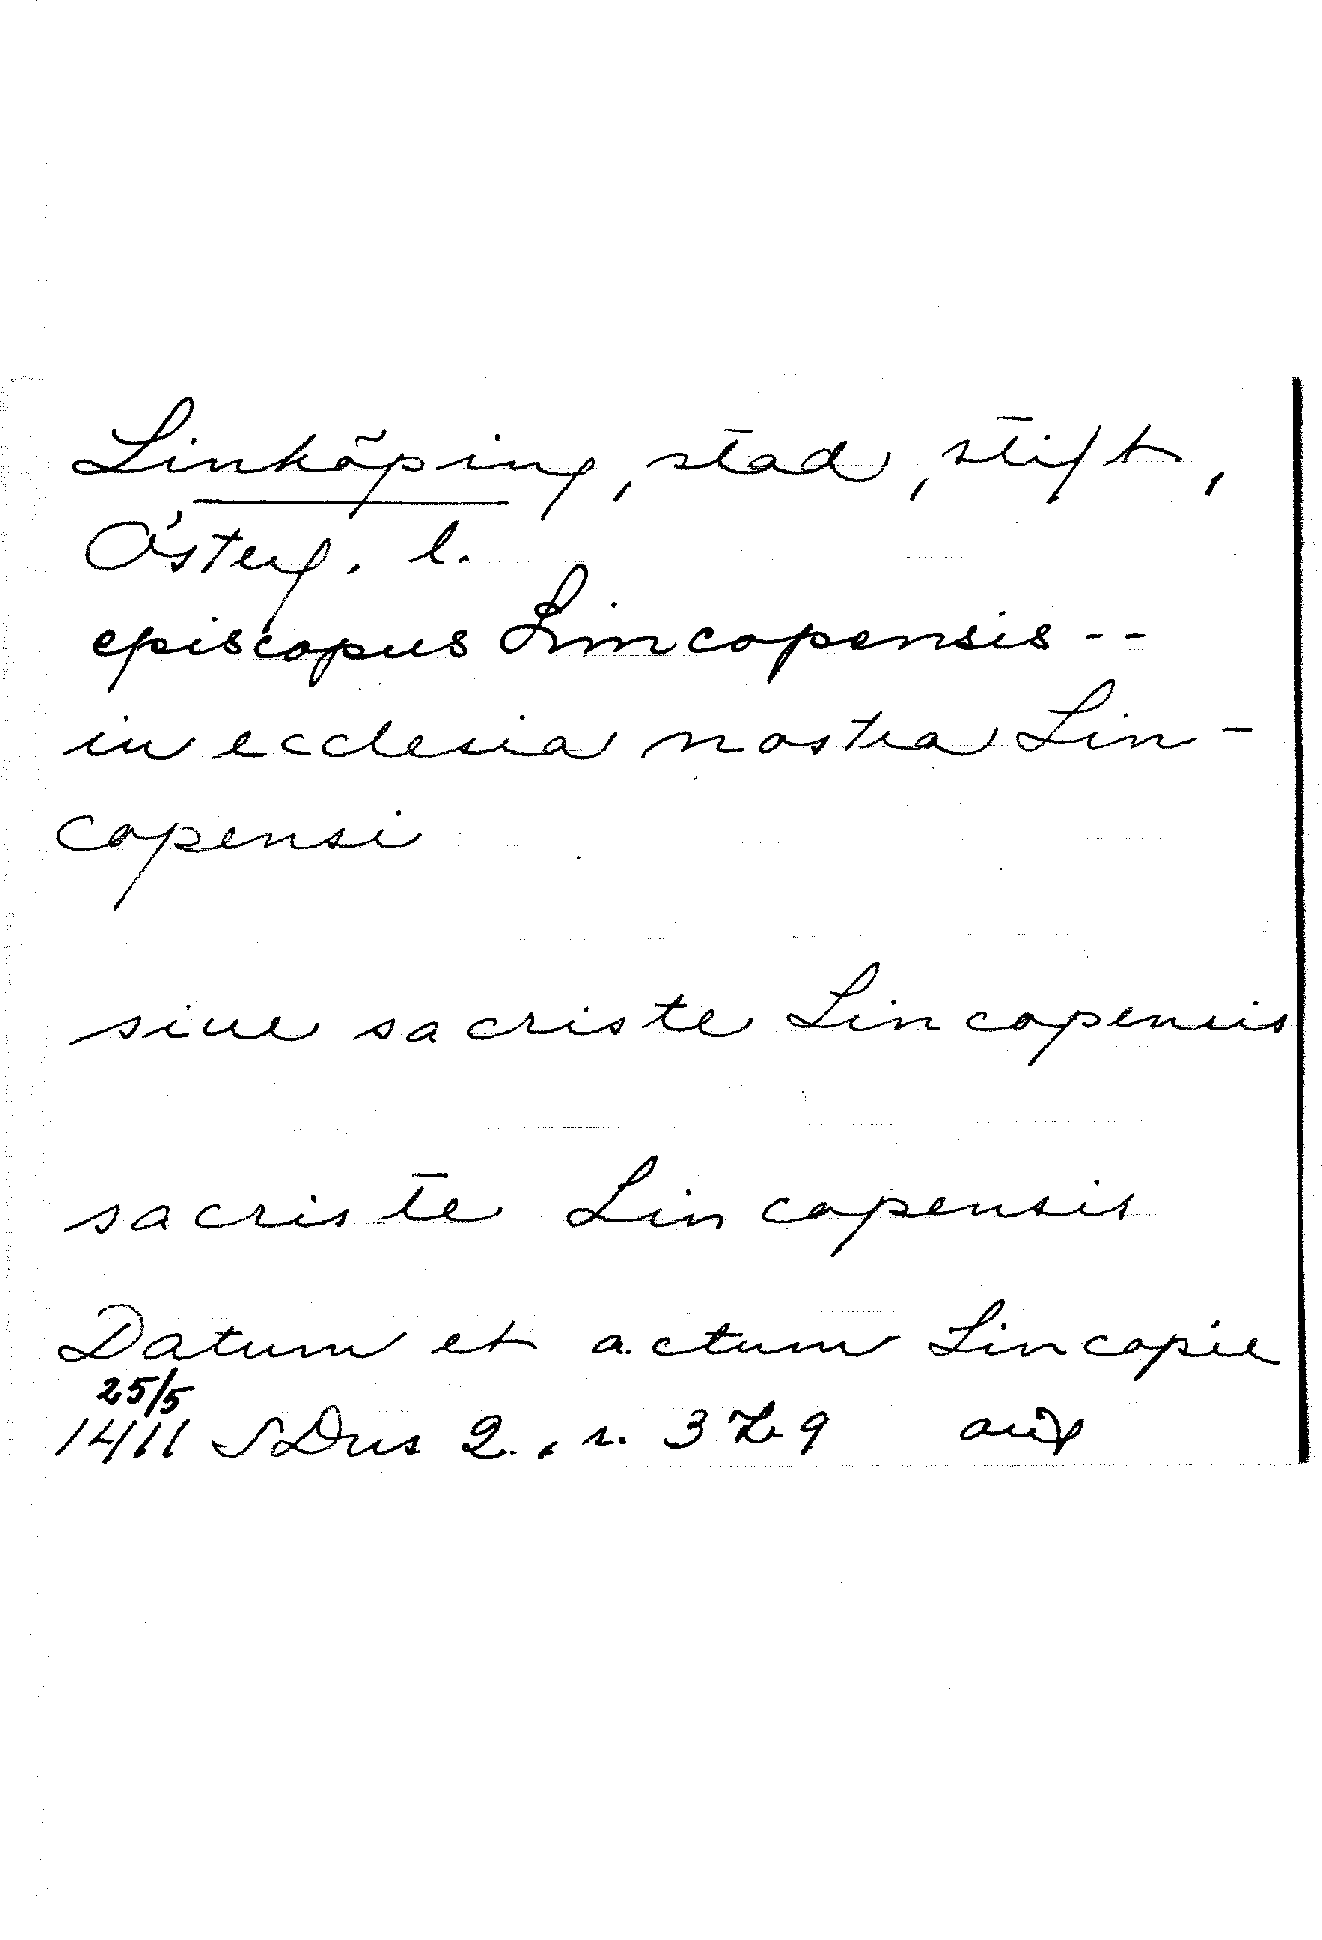 Linköping, stad, stift,
Österg. l.
episcopus Lincopensis --
in ecclesia nostra Lin-
copensi
siue sacriste Lincopensis
sacriste Lincopensis
Datum et actum Lincopie
25/5
1411 SDns 2, s. 379